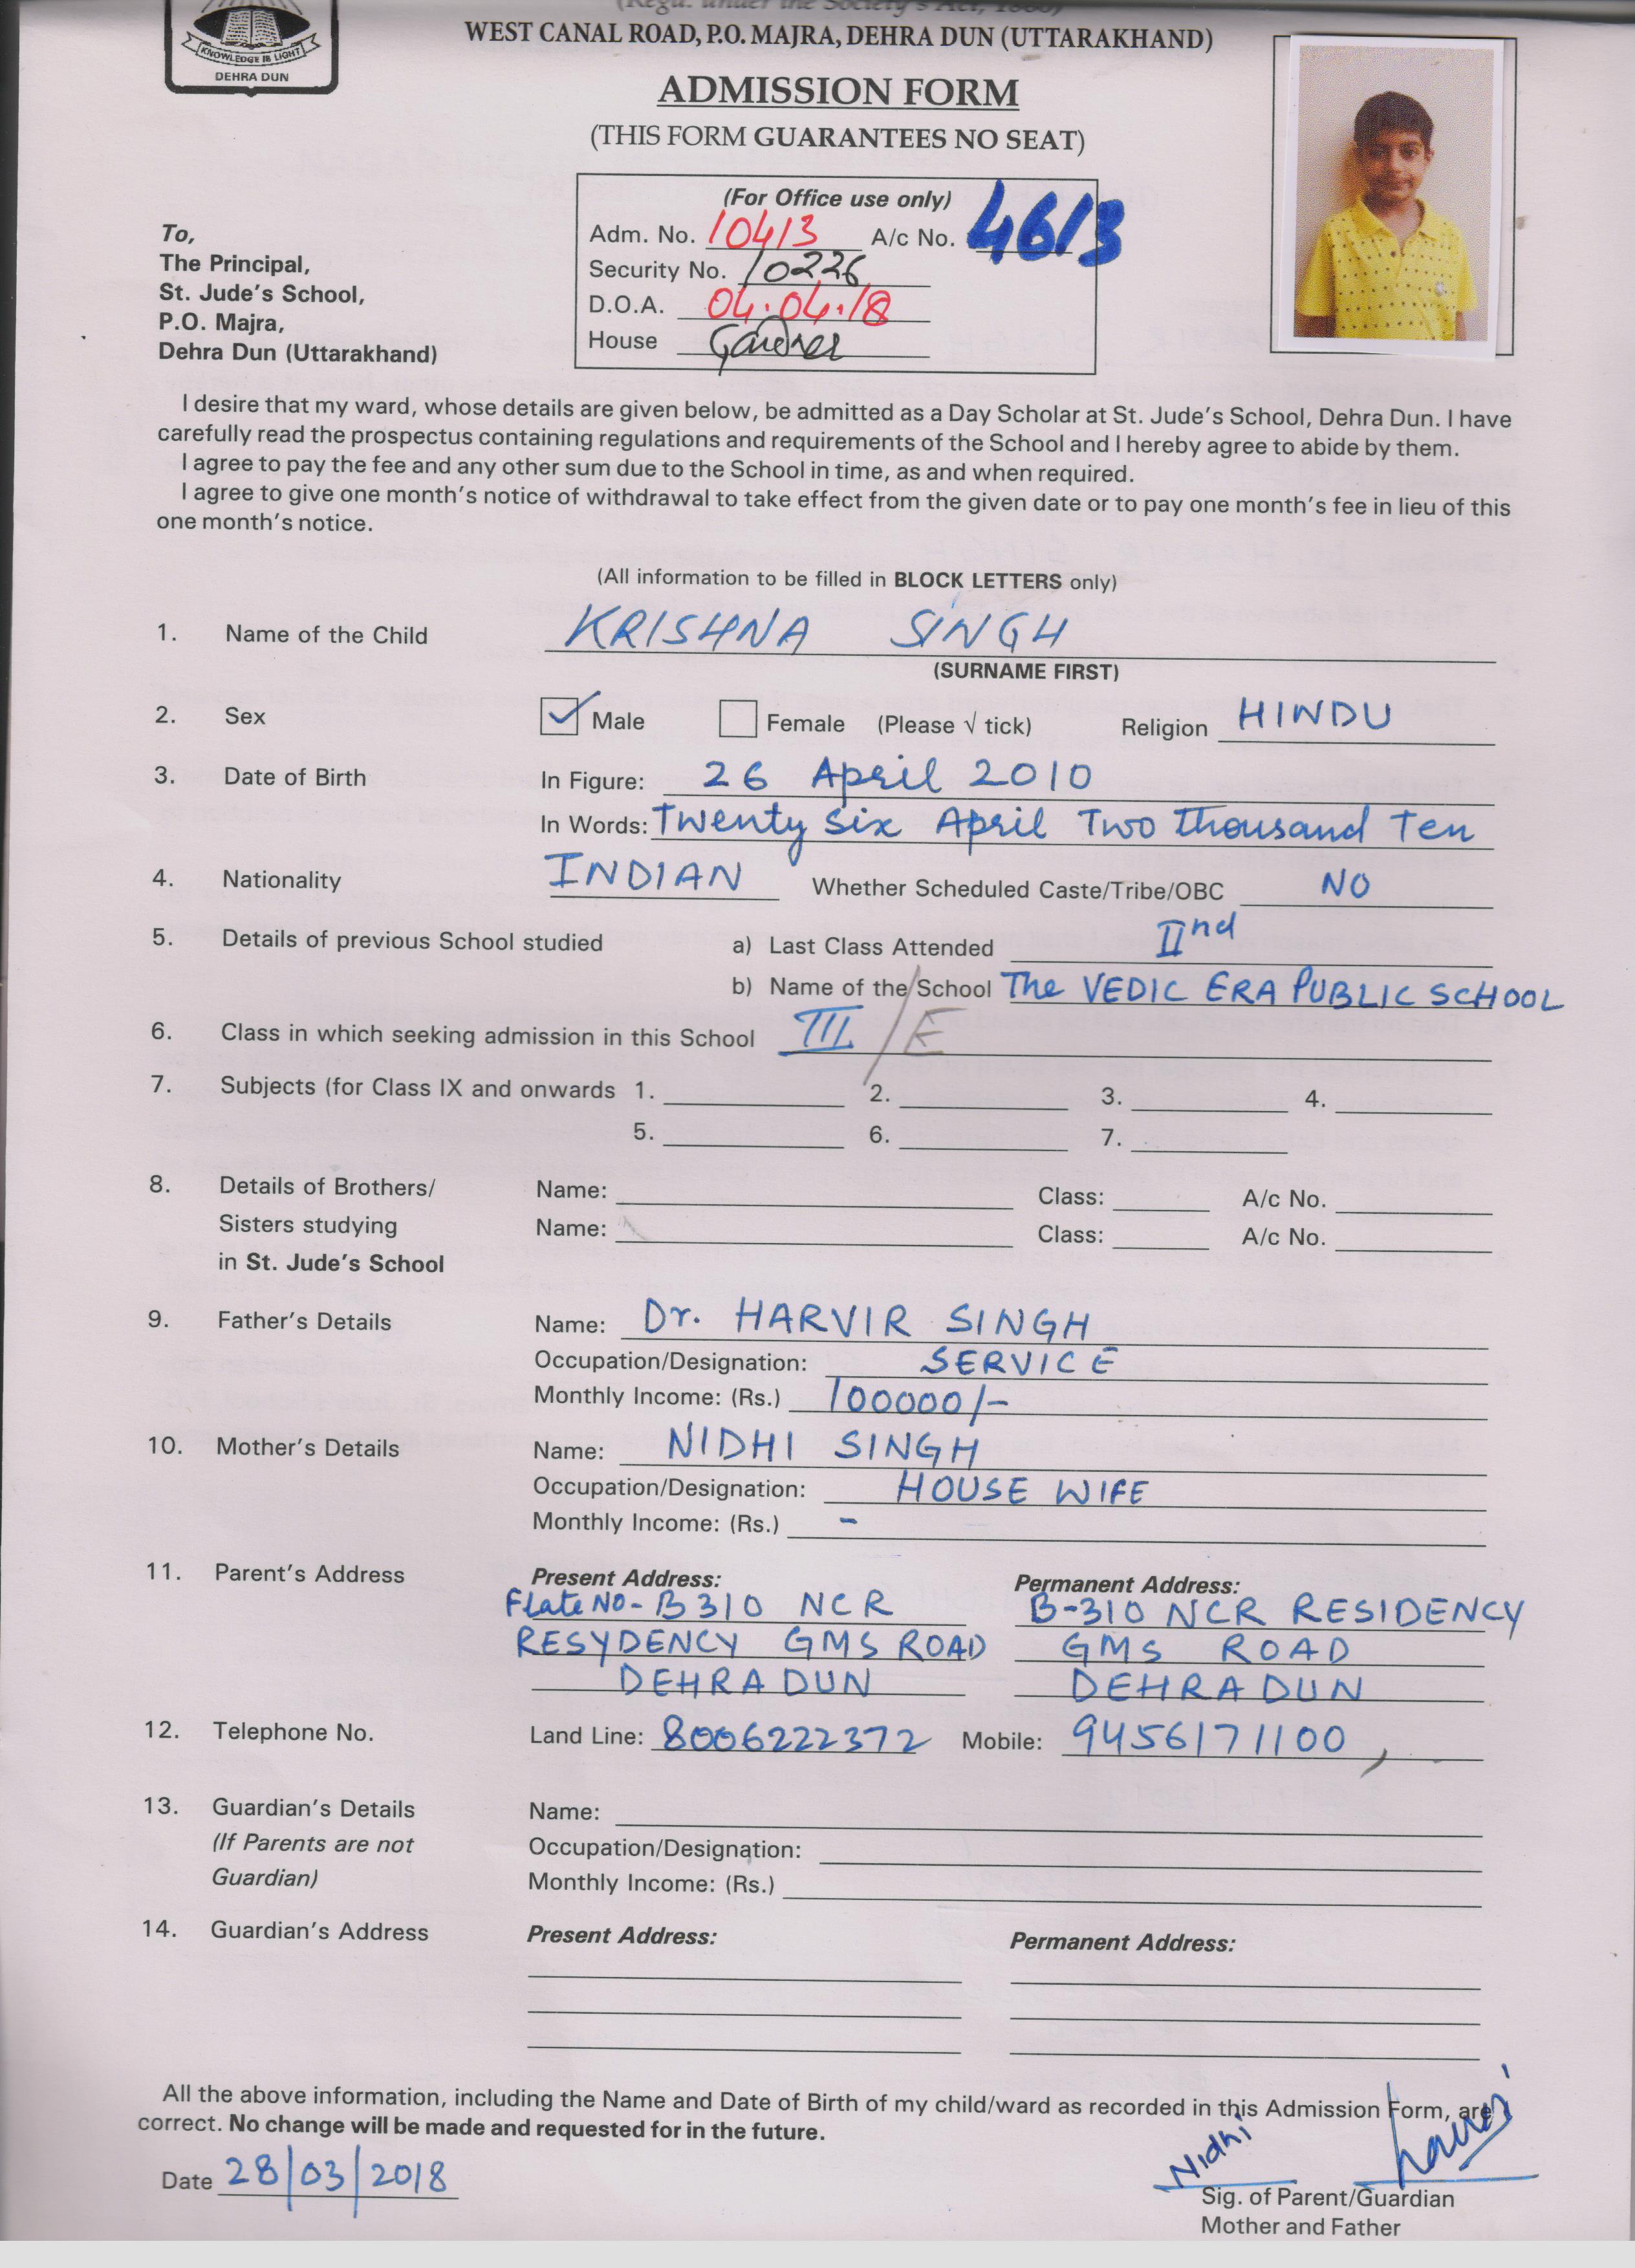 (Regd. under the Society's Act, 1860)
WEST CANAL ROAD, P.O. MAJRA, DEHRA DUN (UTTARAKHAND)
KNOWLEDGE IS LIGHT
DEHRA DUN
ADMISSION FORM
(THIS FORM GUARANTEES NO SEAT)
(For Office use only)
Adm. No. 10413 A/c No. 4613
Security No. 10226
D.O.A. 04.04.18
House Gardner
To,
The Principal,
St. Jude's School,
P.O. Majra,
Dehra Dun (Uttarakhand)
I desire that my ward, whose details are given below, be admitted as a Day Scholar at St. Jude's School, Dehra Dun. I have
carefully read the prospectus containing regulations and requirements of the School and I hereby agree to abide by them.
I agree to pay the fee and any other sum due to the School in time, as and when required.
I agree to give one month's notice of withdrawal to take effect from the given date or to pay one month's fee in lieu of this
one month's notice.
(All information to be filled in BLOCK LETTERS only)
1. Name of the Child KRISHNA SINGH
(SURNAME FIRST)
2. Sex Male Female (Please √ tick) Religion HINDU
3. Date of Birth In Figure: 26 April 2010
In Words: Twenty Six April Two Thousand Ten
4. Nationality INDIAN Whether Scheduled Caste/Tribe/OBC NO
5. Details of previous School studied a) Last Class Attended IInd
b) Name of the School The VEDIC ERA PUBLIC SCHOOL
6. Class in which seeking admission in this School III /E
7. Subjects (for Class IX and onwards 1. 2. 3. 4.
5. 6. 7.
8. Details of Brothers/ Name: Class: A/c No.
Sisters studying Name: Class: A/c No.
in St. Jude's School
9. Father's Details Name: Dr. HARVIR SINGH
Occupation/Designation: SERVICE
Monthly Income: (Rs.) 100000/-
10. Mother's Details Name: NIDHI SINGH
Occupation/Designation: HOUSE WIFE
Monthly Income: (Rs.) -
11. Parent's Address Present Address: Permanent Address:
Flate NO- B 310 NCR B-310 NCR RESIDENCY
RESYDENCY GMS ROAD GMS ROAD
DEHRADUN DEHRADUN
12. Telephone No. Land Line: 8006222372 Mobile: 9456171100,
13. Guardian's Details Name:
(If Parents are not Occupation/Designation:
Guardian) Monthly Income: (Rs.)
14. Guardian's Address Present Address: Permanent Address:
All the above information, including the Name and Date of Birth of my child/ward as recorded in this Admission Form, are
correct. No change will be made and requested for in the future.
Date 28/03/2018 Nidhi
Sig. of Parent/Guardian
Mother and Father